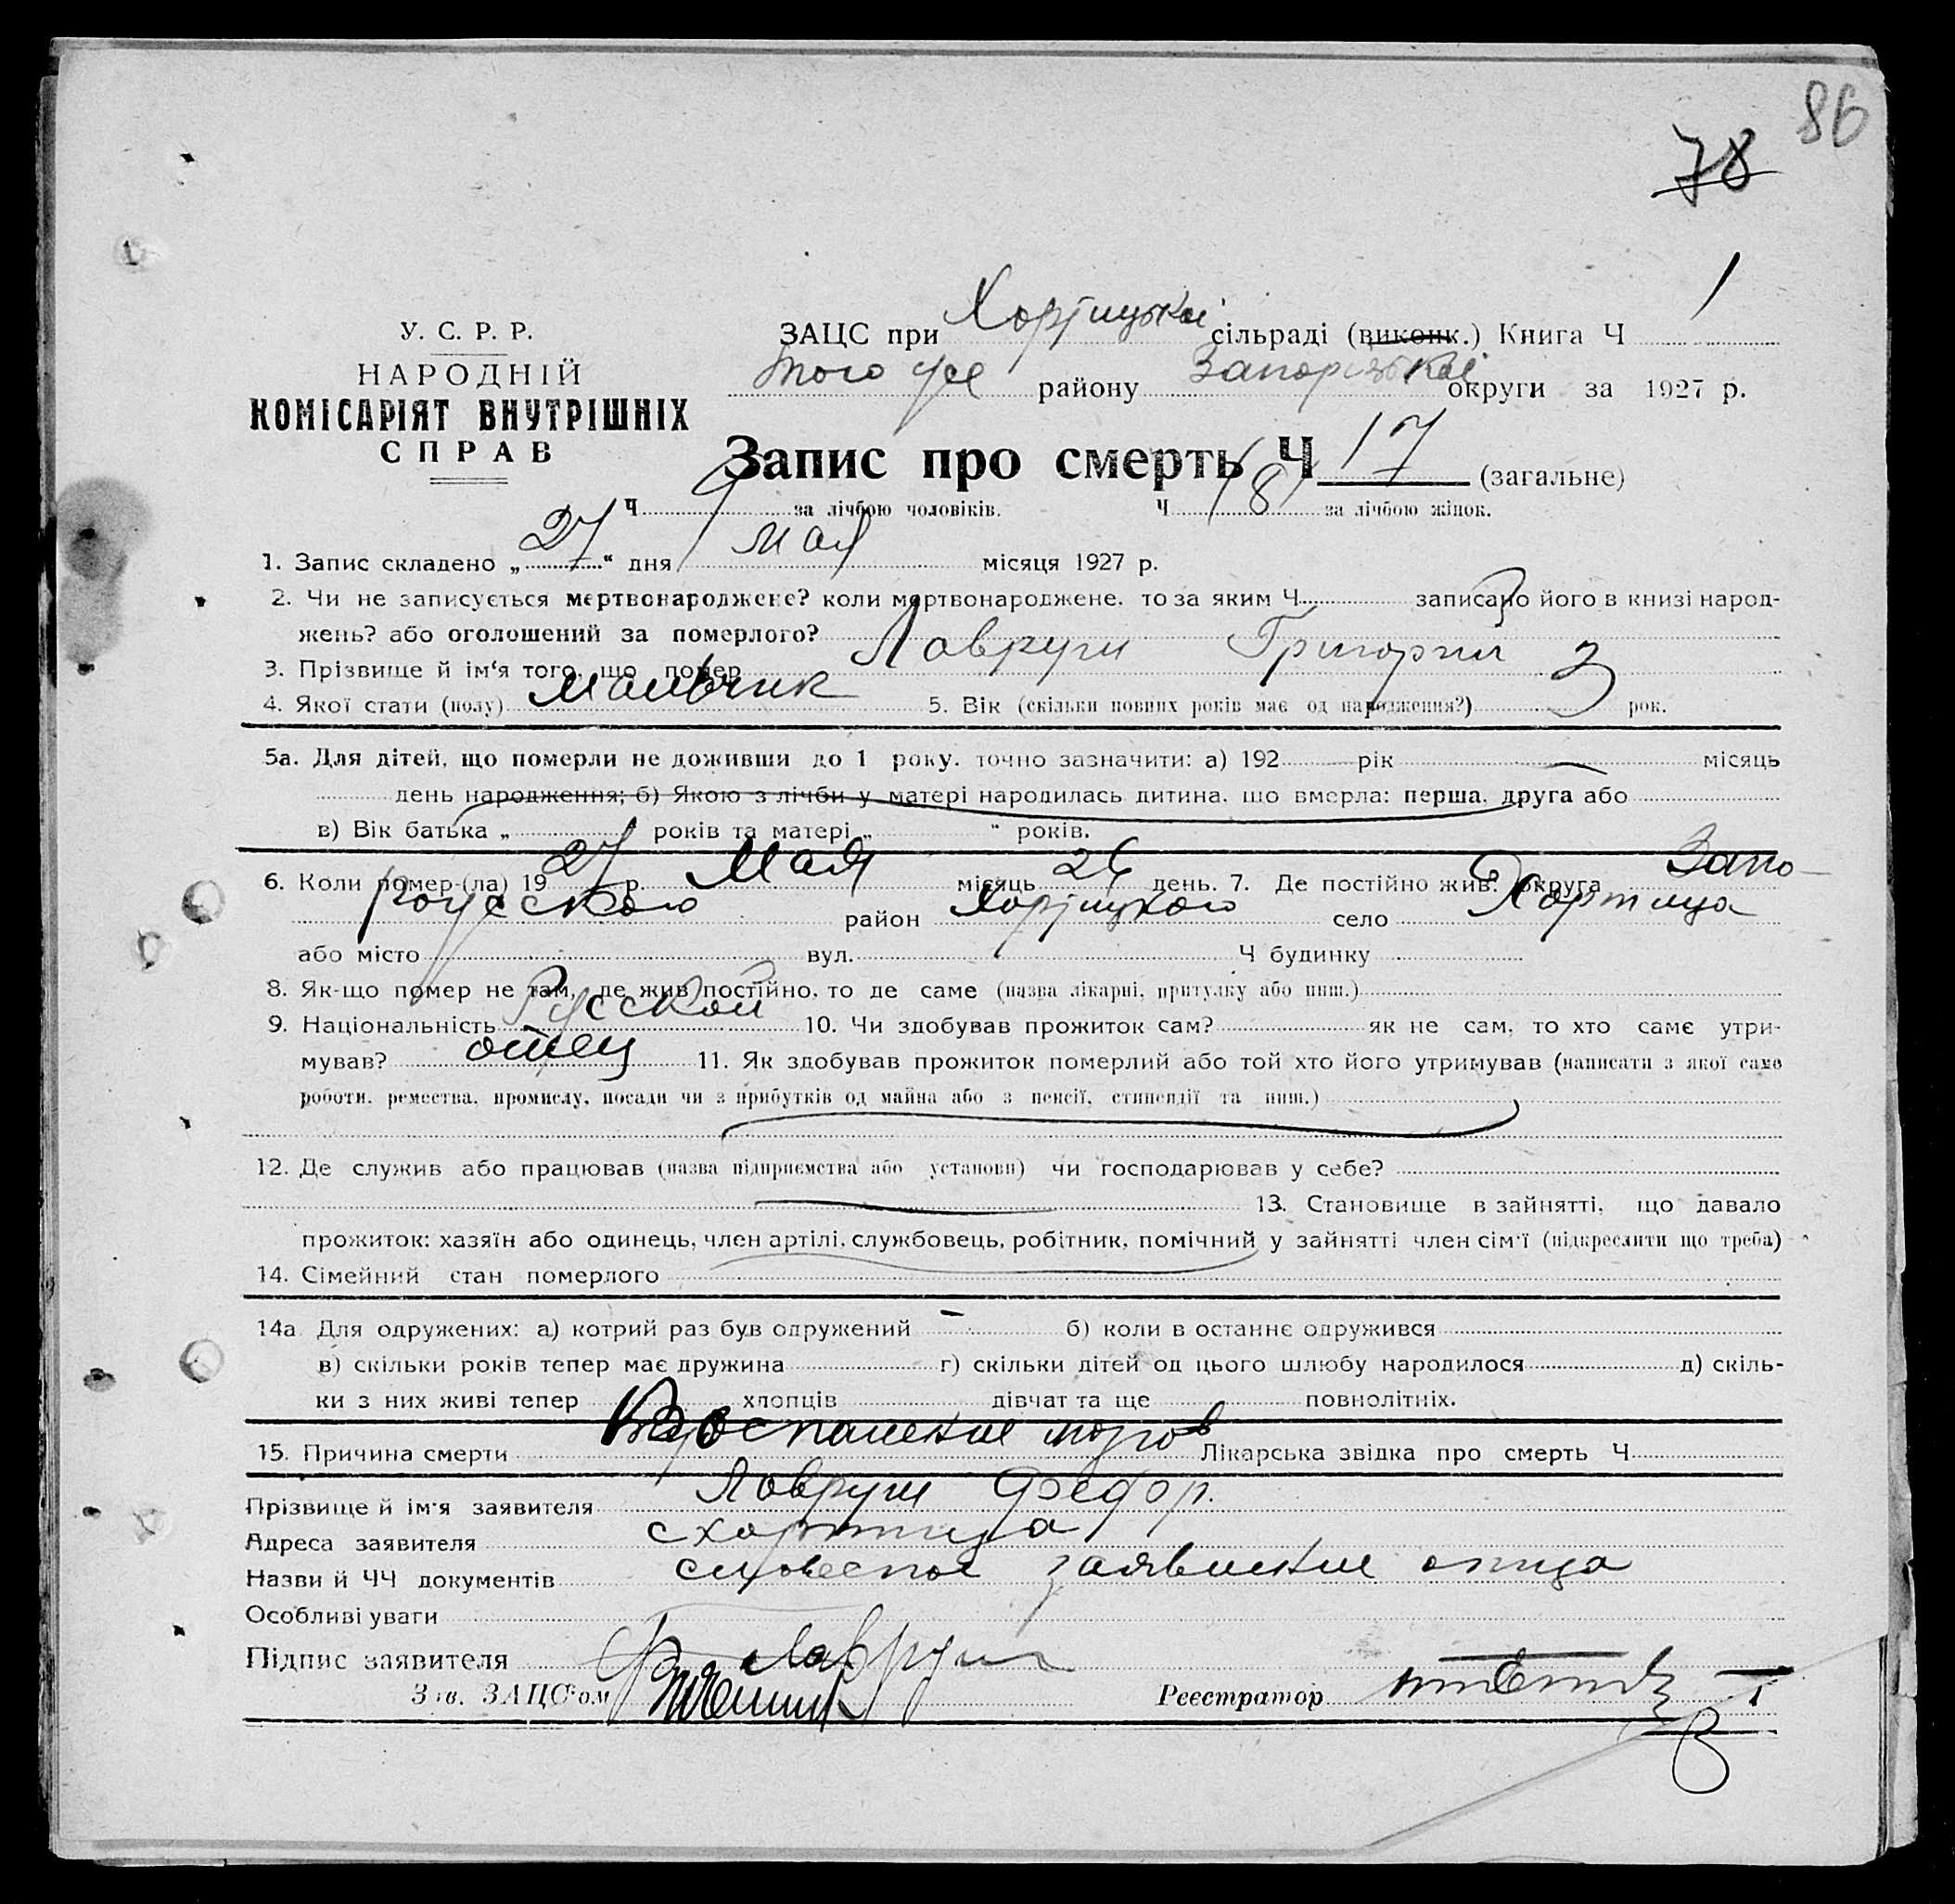 86
78
У. С. Р. Р.
НАРОДНІЙ
КОМІСАРІЯТ ВНУТРІШНІХ
СПРАВ
ЗАЦС при Хортицькій сільраді (виконк.) Книга Ч 1
того же району Запорізької округи за 1927 р.
Запис про смерть Ч 17 (загальне)
Ч 9 за лічбою чоловіків. Ч 8 за лічбою жінок.
1. Запис складено „27“ дня мая місяця 1927 р.
2. Чи не записується мертвонароджене? коли мертвонароджене, то за яким Ч записано його в книзі народ-
жень? або оголошений за померлого?
3. Прізвище й ім‘я того, що помер Лаврущ Григорий
4. Якої стати (полу) мальчик 5. Вік (скільки повних років має од народження?) 3 рок.
5а. Для дітей, що померли не доживши до 1 року, точно зазначити: а) 192 рік місяць
день народження; б) Якою з лічби у матері народилась дитина, що вмерла: перша, друга або
в) Вік батька „ “ років та матері „ “ років.
6. Коли помер-(ла) 1927 р. Мая місяць 26 день. 7. Де постійно жив: округа Запо-
рожского район Хортицкого село Хортица
або місто вул. Ч будинку
8. Як-що помер не там, де жив постійно, то де саме (назва лікарні, притулку або инш.)
9. Національність Русской 10. Чи здобував прожиток сам? як не сам, то хто саме утри-
мував? отец 11. Як здобував прожиток померлий або той хто його утримував (написати з якої саме
роботи, ремества, промислу, посади чи з прибутків од майна або з пенсії, стипендії та инш.)
12. Де служив або працював (назва підприємства або установи) чи господарював у себе?
13. Становище в зайнятті, що давало
прожиток: хазяїн або одинець, член артілі, службовець, робітник, помічний у зайнятті член сім'ї (підкреслити що треба)
14. Сімейний стан померлого
14а Для одружених: а) котрий раз був одружений б) коли в останнє одружився
в) скільки років тепер має дружина г) скільки дітей од цього шлюбу народилося д) скіль-
ки з них живі тепер хлопців дівчат та ще повнолітніх.
15. Причина смерти Воспаление мозгов Лікарська звідка про смерть Ч
Прізвище й ім'я заявителя Лаврущ Федор.
Адреса заявителя с Хортица
Назви й ЧЧ документів словесное заявление отца
Особливі уваги
Підпис заявителя Ф Лаврущ
Зав. ЗАЦС'ом Реєстратор